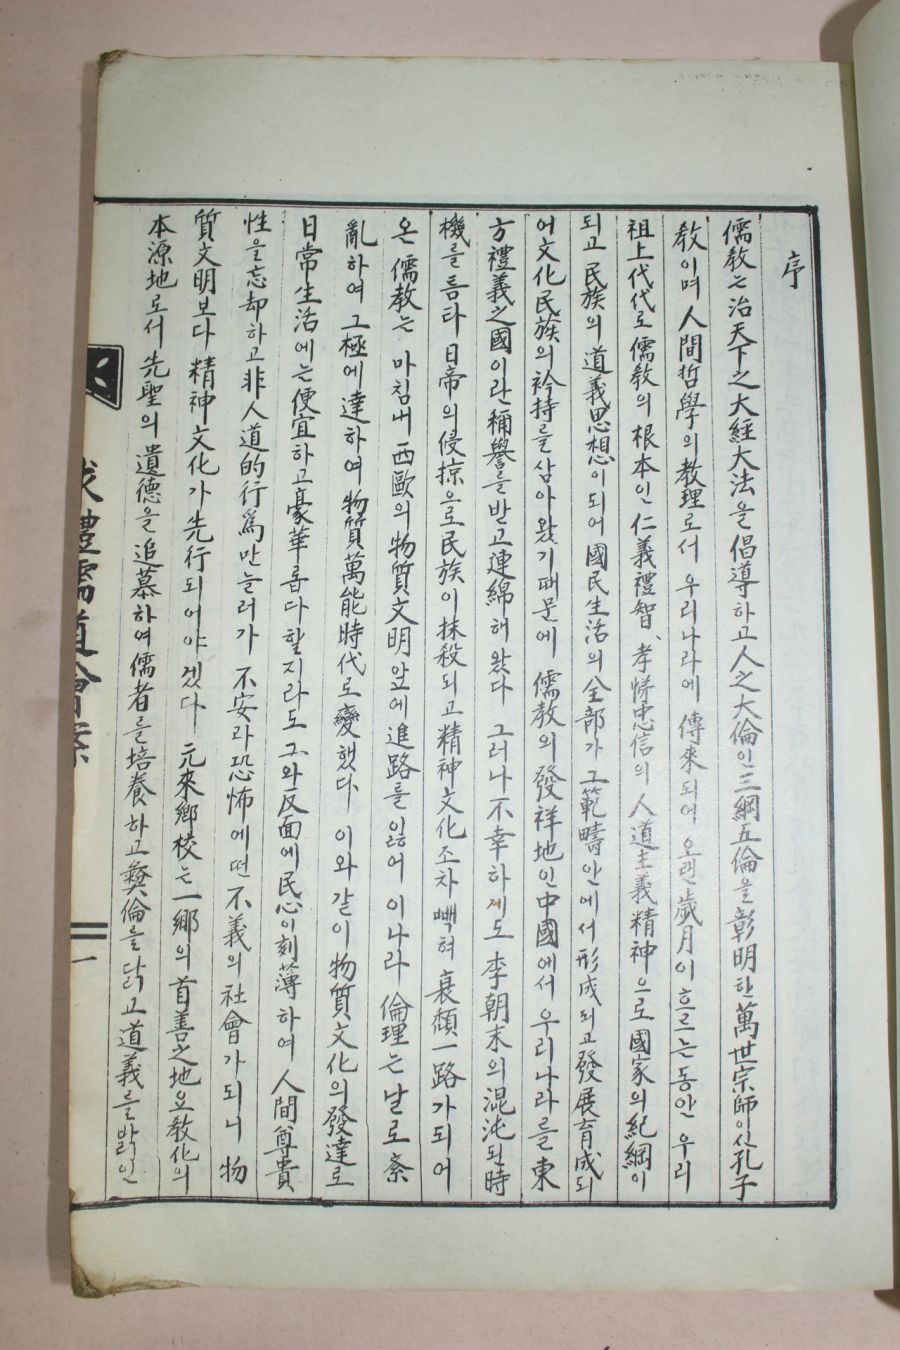 序
儒敎는 治天下之大經大法을 倡導하고 人之大倫인 三綱五倫을 彰明한 萬世宗師이신 孔子
敎이며 人間哲學의 敎理로서 우리나라에 傳來되여 오랜 歲月이 흐르는동안 우리
祖上代代로 儒敎의 根本인 仁義禮智、孝悌忠信의 人道主義精神으로 國家의 紀綱이
되고 民族의 道義思想이되어 國民生活의 全部가 그 範疇안에서 形成되고 發展育成되
어 文化民族의 衿持를 삼아왔기때문에 儒敎의 發祥地인 中國에서 우리나라를 東
方禮義之國이란 稱譽를 받고 連綿해왔다 그러나 不幸하게도 李朝末의 混沌된 時
機를 틈타 日帝의 侵掠으로 民族이 抹殺되고 精神文化조차 빼혀 衰頹一路가되어
온 儒敎는 마침내 西歐의 物質文明앞에 進路를 잃어 이나라 倫理는 날로 紊
亂하여 그 極에 達하여 物質萬能時代로 變했다 이와같이 物質文化의 發達로
日常生活에는 便宜하고 豪華롭다 할지라도 그와 反面에 民心이 刻薄하여 人間尊貴
性을 忘却하고 非人道的行爲만 늘러가 不安과 恐怖에떤 不義의 社會가되니 物
質文明보다 精神文化가 先行되어야겠다 元來 鄕校는 一鄕의 首善之地요 敎化의
本源地로서 先聖의 遺德을 追慕하여 儒者를 培養하고 彛倫을 닭고 道義를 밝인
禮儒道會案
一